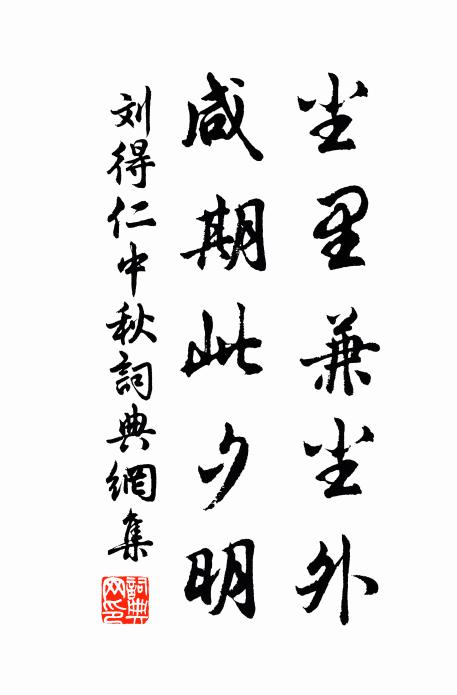 尘里兼尘外
咸期此夕明
刘得仁中秋詞典網集
詞典
网印